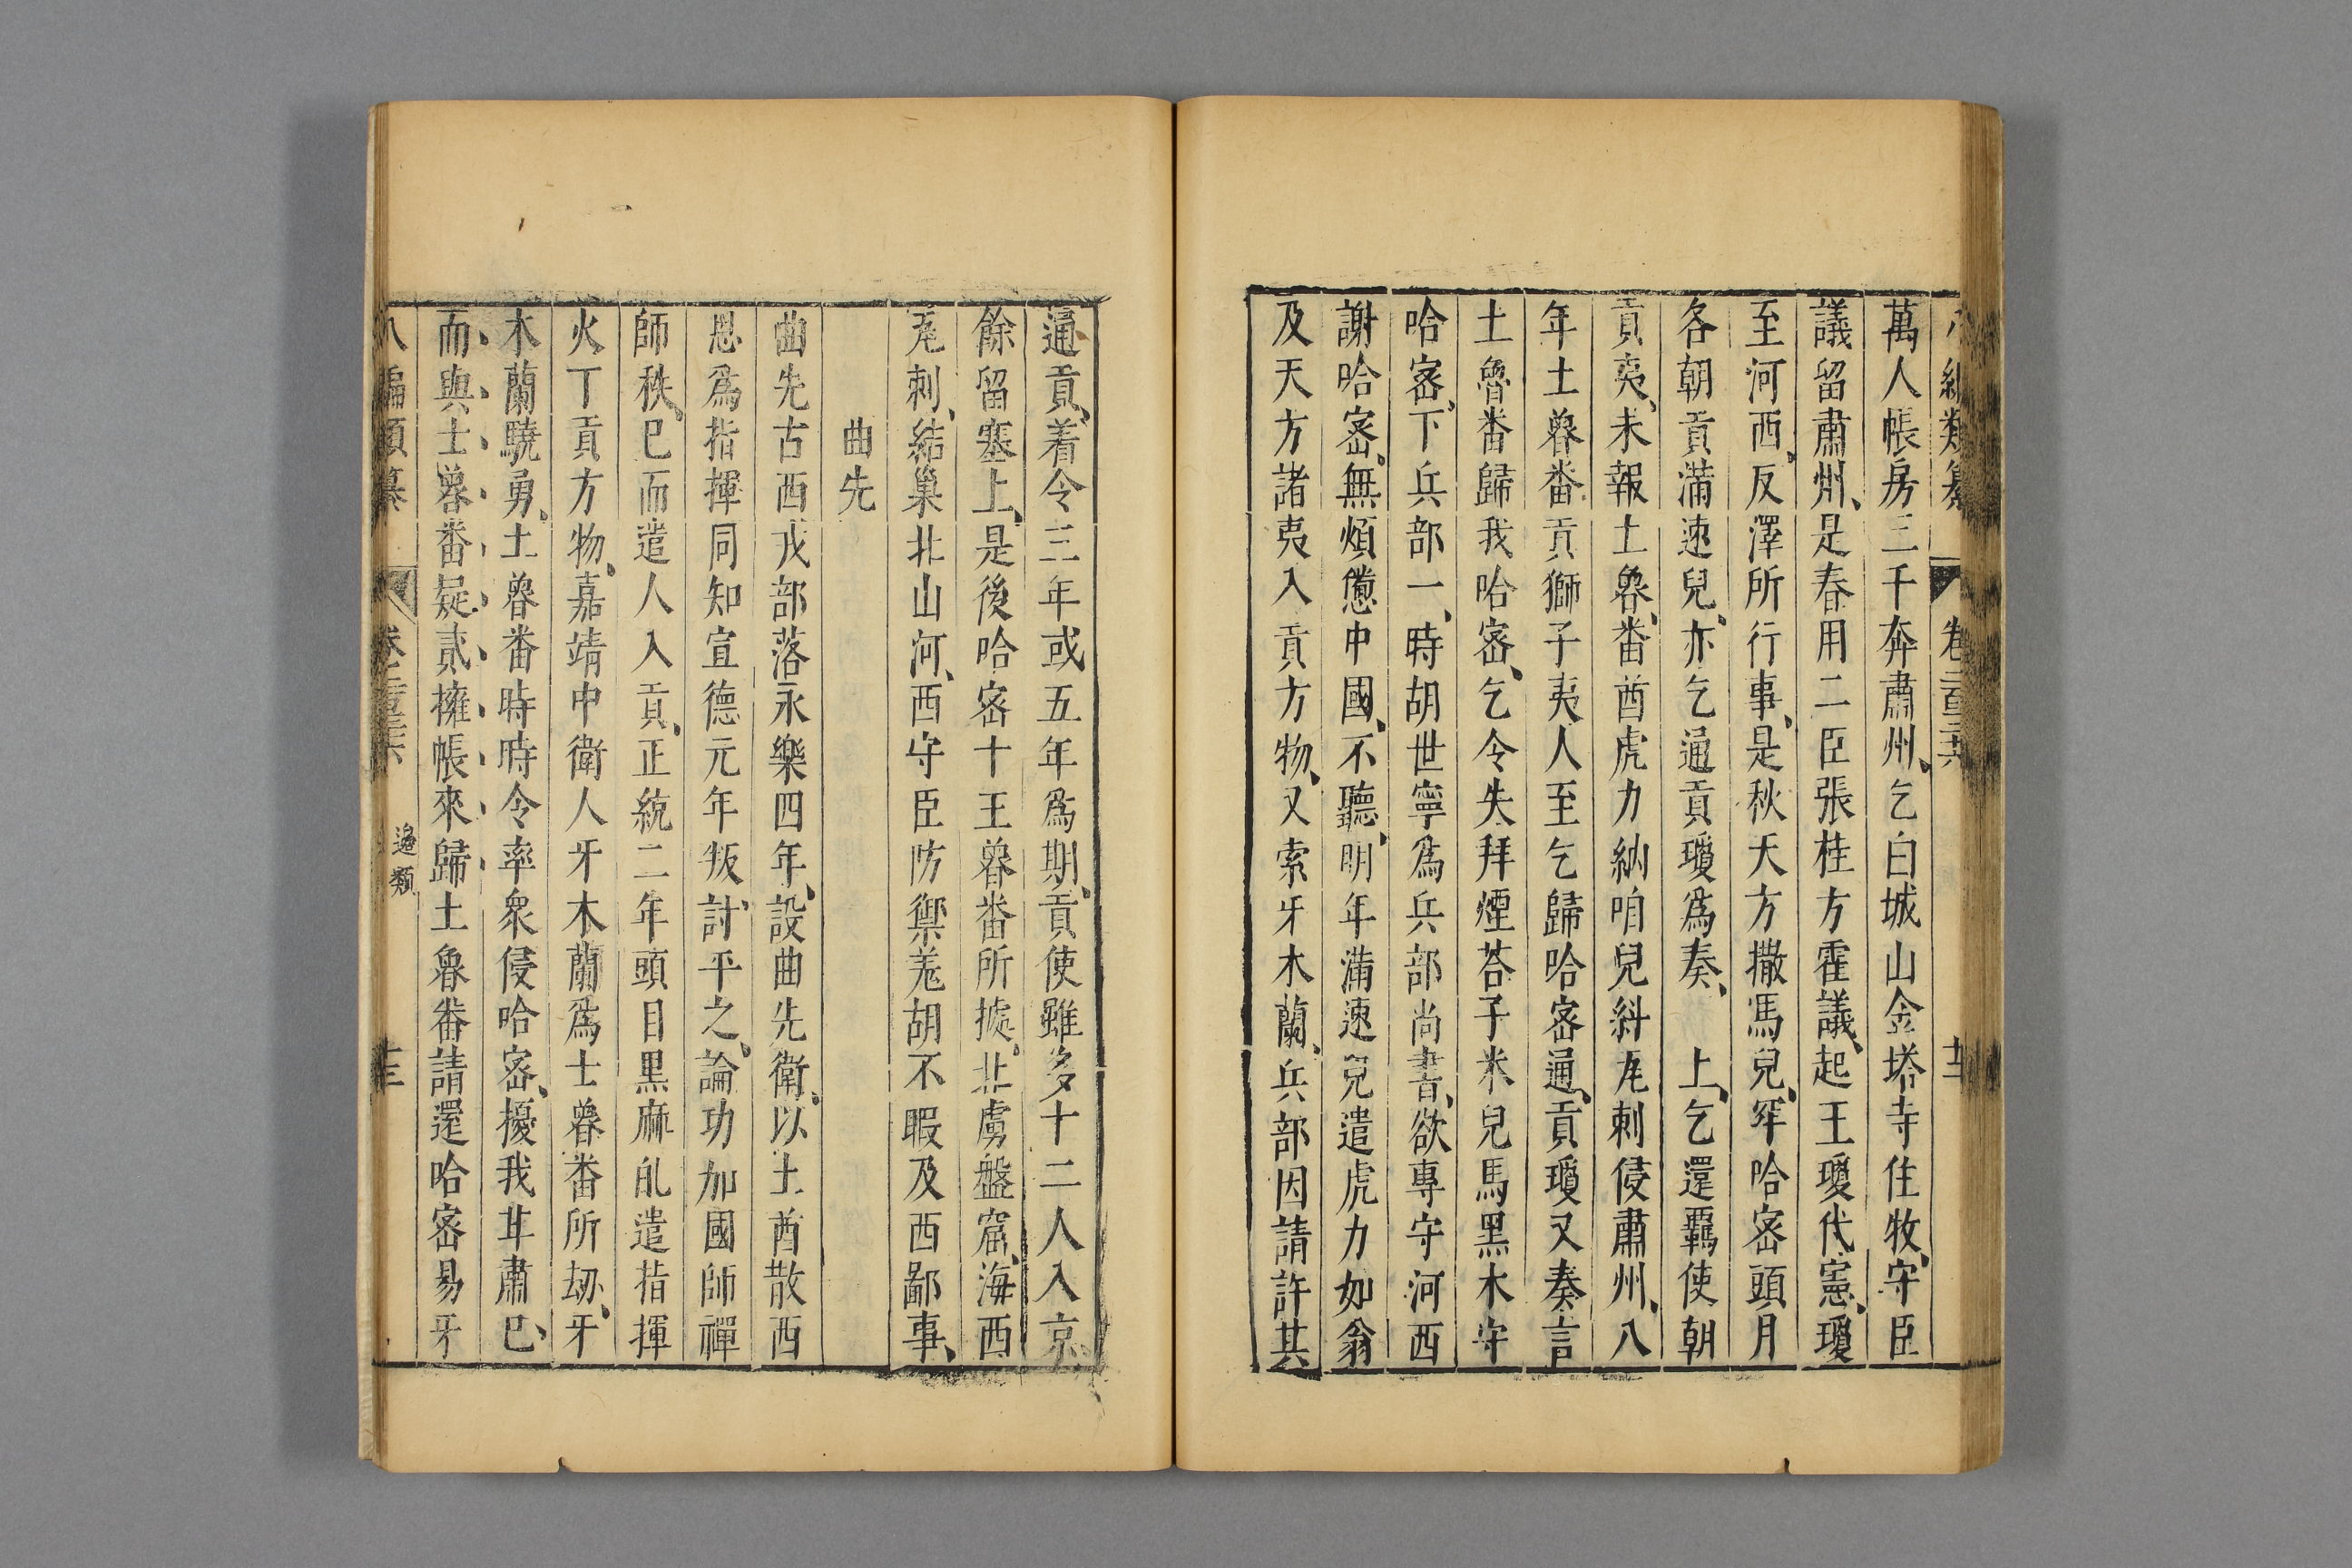 八編類纂 卷二百三十六 十二
萬人帳房三千奔肅州、乞白城山金塔寺住牧、守臣
議留肅州、是春用二臣張桂方霍議、起王瓊代憲、瓊
至河西、反澤所行事、是秋天方撒馬兒、罕哈密頭月
各朝貢滿速兒、亦乞通貢瓊爲奏、 上、乞還羈使朝
貢夷、未報土魯、畨酋虎力納咱兒糾𤬦剌侵肅州、八
年土魯畨貢獅子夷人至乞歸哈密通、貢瓊又奏言
土魯畨歸我哈密、乞令失拜煙荅子米兒馬黑木守
哈密、下兵部一、時胡世寧爲兵部尚書、欲專守河西
謝哈密、無煩憊中國、不聽、明年滿速兒遣虎力如翁
及天方諸夷入貢方物、又索牙木蘭、兵部因請許其
通貢、着令三年或五年爲期、貢使雖多十二人入京
餘留塞上、是後哈密十王魯畨所據、北虜盤窟、海西
𤬦剌、結巢北山河、西守臣防禦羗胡不暇及西鄙事、
曲先
曲先古西戎部落永樂四年、設曲先衛、以土酋散西
思爲指揮同知宣德元年叛、討平之、論功加國師禪
師秩、已而遣人入貢、正統二年頭目黑麻癿遣指揮
火丁貢方物、嘉靖中衛人牙木蘭爲士魯畨所刼、牙
木蘭驍勇、土魯畨時時令率衆侵哈密、擾我甘肅巳、
而與士魯畨疑貳擁帳來歸土魯畨請還哈密易牙
八編類纂 卷二百三十六 邊類 十三